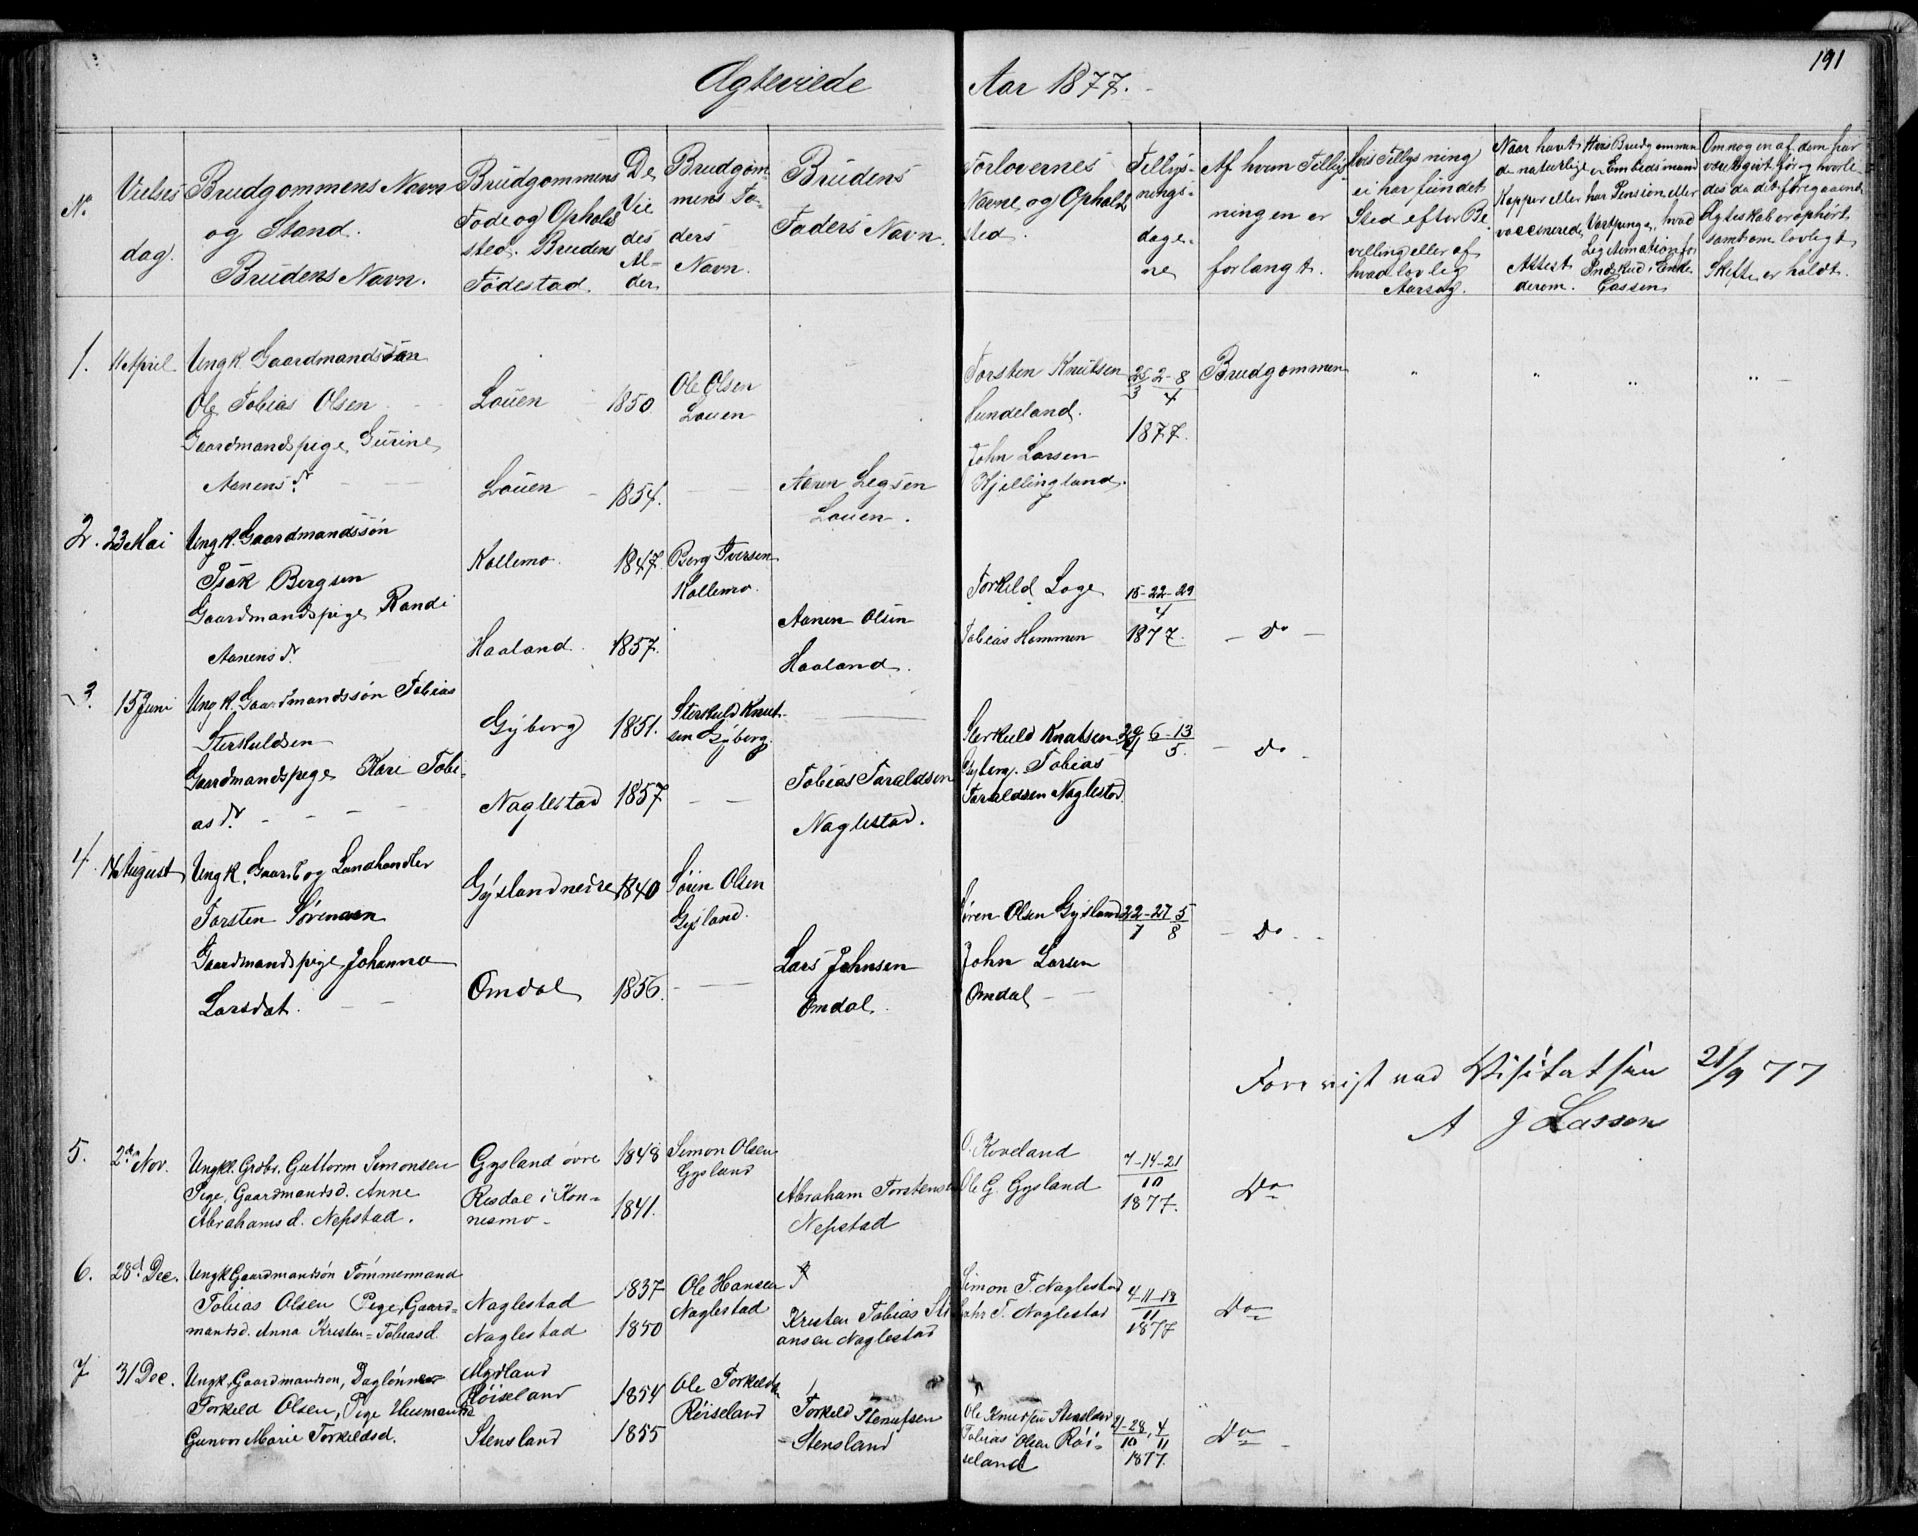 191
Ægteviede Aar 1877.
No
Vielses
dag.
Brudgommens Navn
og Stand.
Brudens Navn.
Brudgommens
Føde og Opholds
sted. Brudens
Fødestad.
De
Vie
des
Al-
der.
Brudgom-
mens Fa-
ders
Navn.
Brudens
Faders Navn.
Forlovernes
Navne og Ophold
sted.
Tillys-
nings-
dage-
ne
Af hvem Tillys
ningen er
forlangt.
Hvis Tillysning
ei har fundet
Sted efter Be
villing eller af
hvad lovlig
Aarsag.
Naar havt
de naturlige
Kopper eller
vaccinered,
Attest
derom.
Hvis Brudgommen
er Embedsmand
har Pension eller
Vartpenge, hvad
Legitimation for
Indskud i Enke
Cassen
Om nogen af dem har
været gift før og hvorle
des da det foregaaende
Ægteskab er ophørt
samt om lovligt
Skifte er holdt.
1.
11 April
Ungk. Gaardmandssøn
Ole Tobias Olsen
Gaardmandspige Gurine
Aanensd.
Louen
Louen
1850
1854.
Ole Olsen
Louen
Aanen Legsen
Louen.
Torsten Knutsen
Hundeland.
John Larsen
Kjellingland.
25/3 2-8/4
1877.
Brudgommen
2.
23 Mai
Ungk. Gaardmandssøn
Isak Bergsen
Gaardmandspige Randi
Aanensd.
Kollemo.
Haaland.
1847.
1857.
Berg Iversen
Kollemo.
Aanen Olsen
Haaland.
Torkild Loge
Tobias Hommen
15-22-29
4
1877.
- Do -
3.
15 Juni
Ungk. Gaardmandssøn Tobias
Sterkuldsen
Gaardmandspige Kari Tobi-
asd.
Gyberg
Naglestad
1851.
1857
Sterkuld Knut-
sen Gyberg.
Tobias Taraldsen
Naglestad.
Sterkuld Knutsen
Gyberg. Tobias
Taraldsen Naglestad.
29/4 6-13/5.
- Do -
4.
14 August
Ungk. Gaardb og Landhandler
Torsten Sørensen
Gaardmandspige Johanna
Larsdat.
Gyslandnedre
Omdal
1840
1856.
Søren Olsen
Gysland.
Lars Johnsen
Omdal.
Søren Olsen Gysland
John Larsen
Omdal
22-27/7 5/8
- Do -
Forevist ved Visitatsen 21/9 77
A J Lasson
5.
2den Nov.
Ungkl. Grdbr. Guttorm Simonsen
Pige, Gaardmandsd. Anne
Abrahamsd. Nepstad.
Gysland øvre
Risdal i Kon-
nesmo.
1848
1841.
Simon Olsen
Gysland
Abraham Torstensen
Nepstad
O. Roveland
Ole G. Gysland
7-14-21
10
1877.
Do
6.
28d Dec.
Ungk. Gaardmandsøn Tømmermand
Tobias Olsen Pige, Gaard-
mandsd. Anna Kristen-Tobiasd.
Naglestad
Naglestad
1837
1850
Ole Hansen
Naglestad
Kristen Tobias
ansen Naglestad
Simon T. Naglestad
T. Naglestad
4-11-18
11
1877
Do
7
31 Dec.
Ungk. Gaardmandsøn, Daglønner
Torkild Olsen, Pige Husmands
Gunvor Marie Torkildsd.
Mydland
Røiseland
Stensland
1854
1855
Ole Torkilds
Røiseland
Torkild
Stensland
Ole Knudsen Stensland
Tobias Olsen Røi-
seland
21-28/10, 4/11
1877.
Do